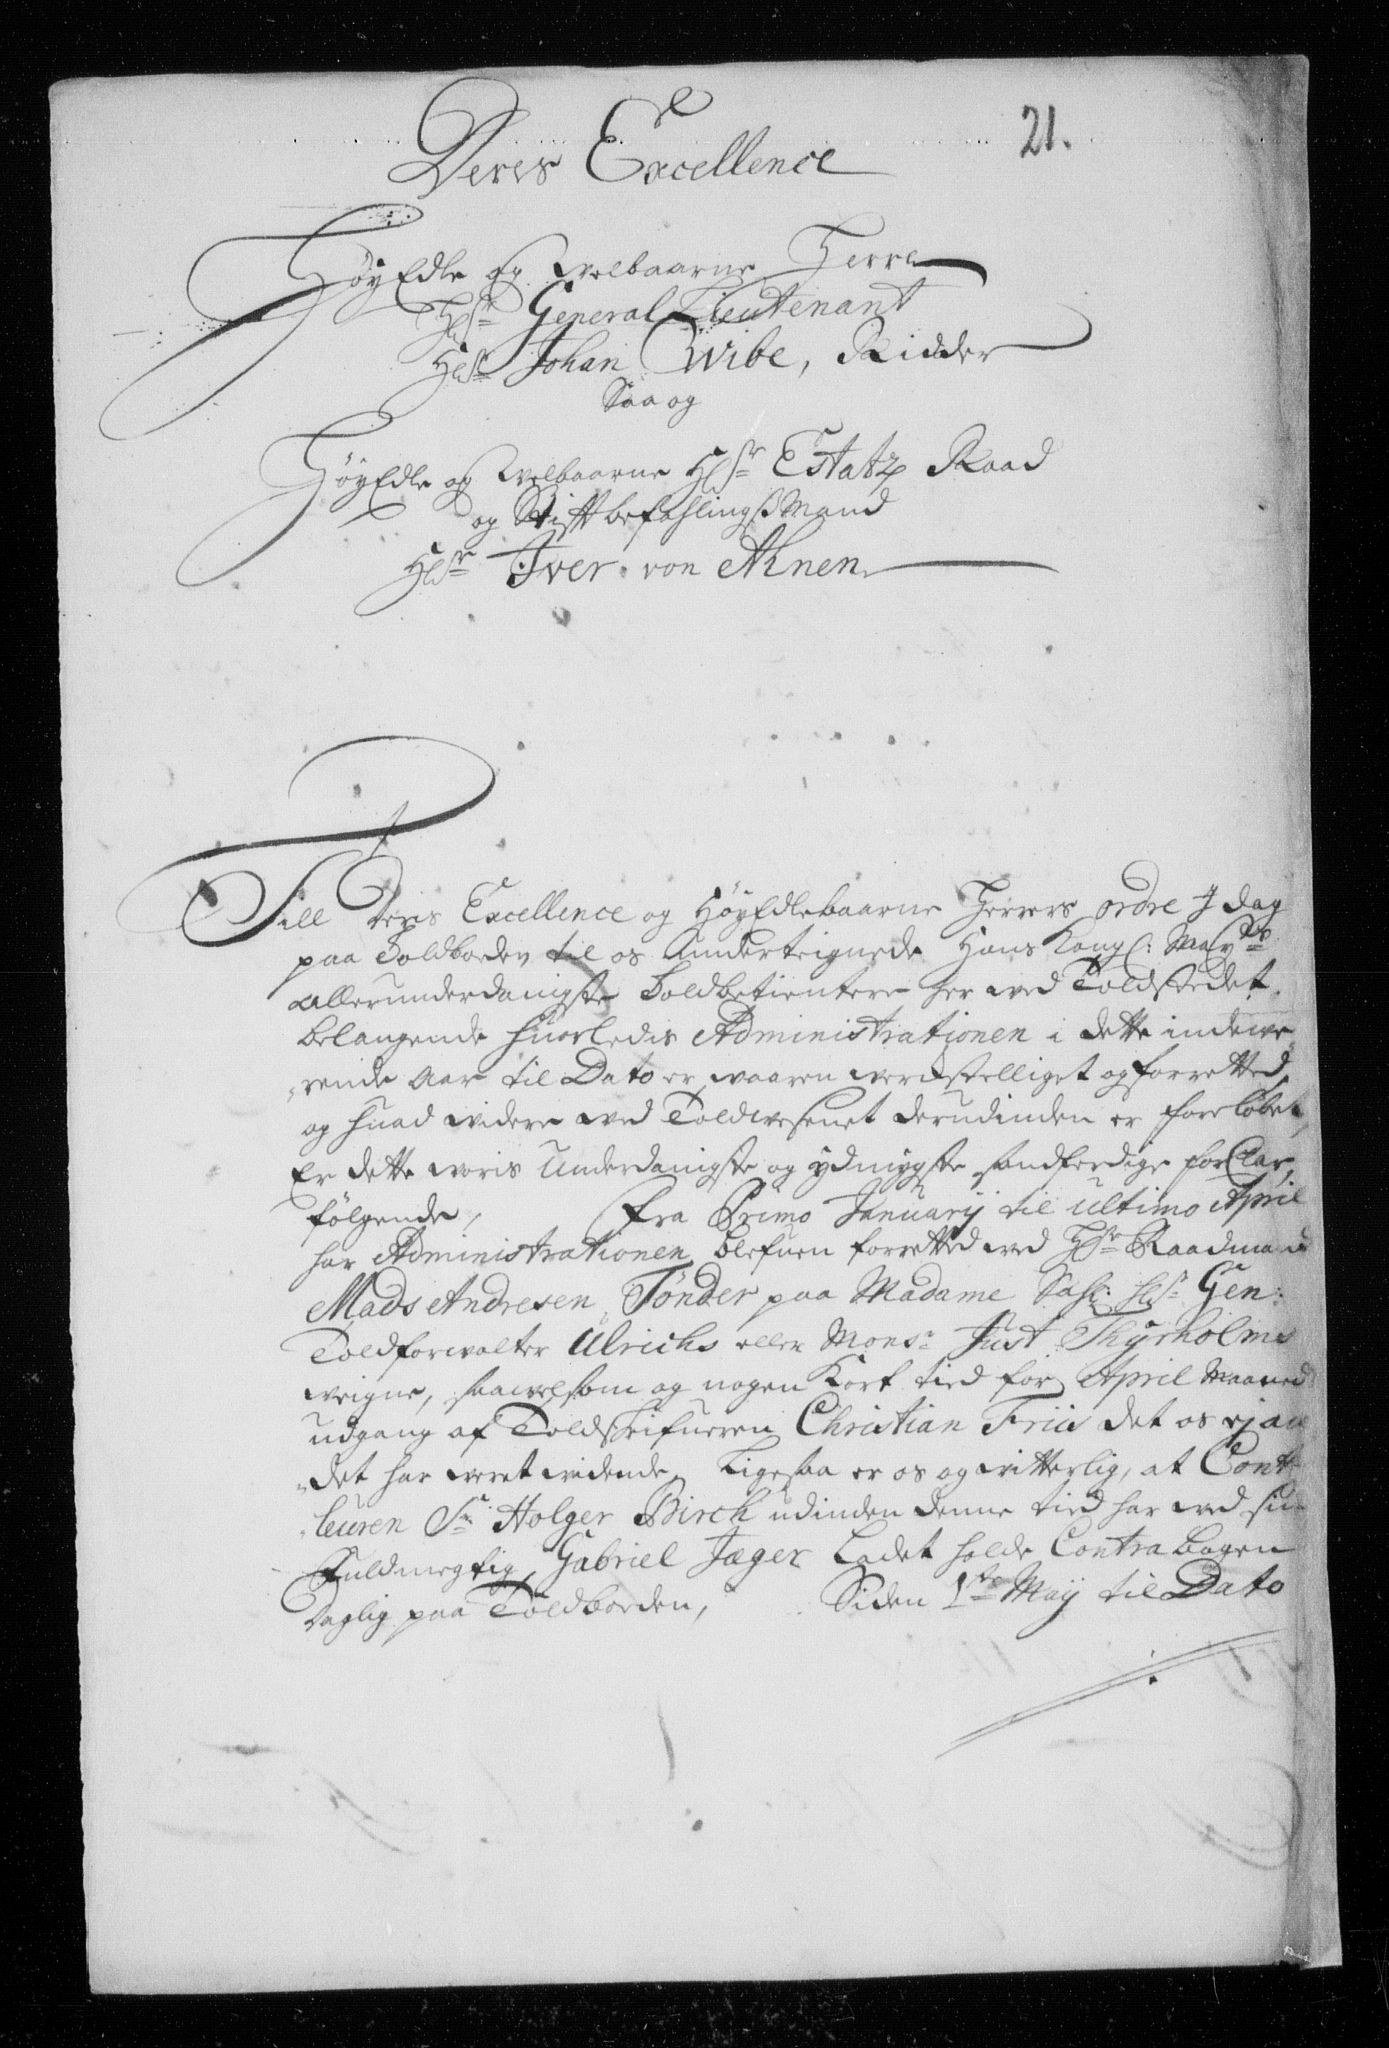 21.
Deris Excellence
HøyEdle og Welbaarne Herre
Hlsr General Lieutenant
Hlsr Johan Wibe, Ridder
Saa og
HøyEdle og Welbaarne Hlsr Estatz Raad
og StiftbefahlingsMand
Hlsr Iver von Ahnen
Till Deris Excellence og HøyEdlebaarne Herrers ordre J dag
paa Toldboden til os Underteignede Hans Kongl: Mayts
allerunderdanigste Toldbetientere her ved Toldstedet,
belangende huorledis Administrationen i dette indewe
„rende Aar til Dato er waaren werckstelliget og forretted,
og huad widere ved Toldwesenet derudinden er foreløbet,
Er dette woris Underdanigste og ydmygste sandferdige forClar,
følgende, Fra Primo Januarij til ultimo April
har Administrationen blefuen forretted ved Hr Raadmand
Mads Andresen Tønder paa Madame Sahl: Hlr Gen:
Toldforvalter Ulrichs eller Monsr Just Thyrholms
weigne, saawelsom og nogen Kort tied for April Maaned
udgang af Toldskrifueren Christian Friis det os ej an
„det har weret widende, Ligesaa er os og witterlig, at Contr
„leuren Sr Holger Birch udinden denne tied har ved sin
Fuldmegtig Gabriel Jæger Ladet holde Contra bogen
daglig paa Toldboden, Siden 1ste Maij til Dato